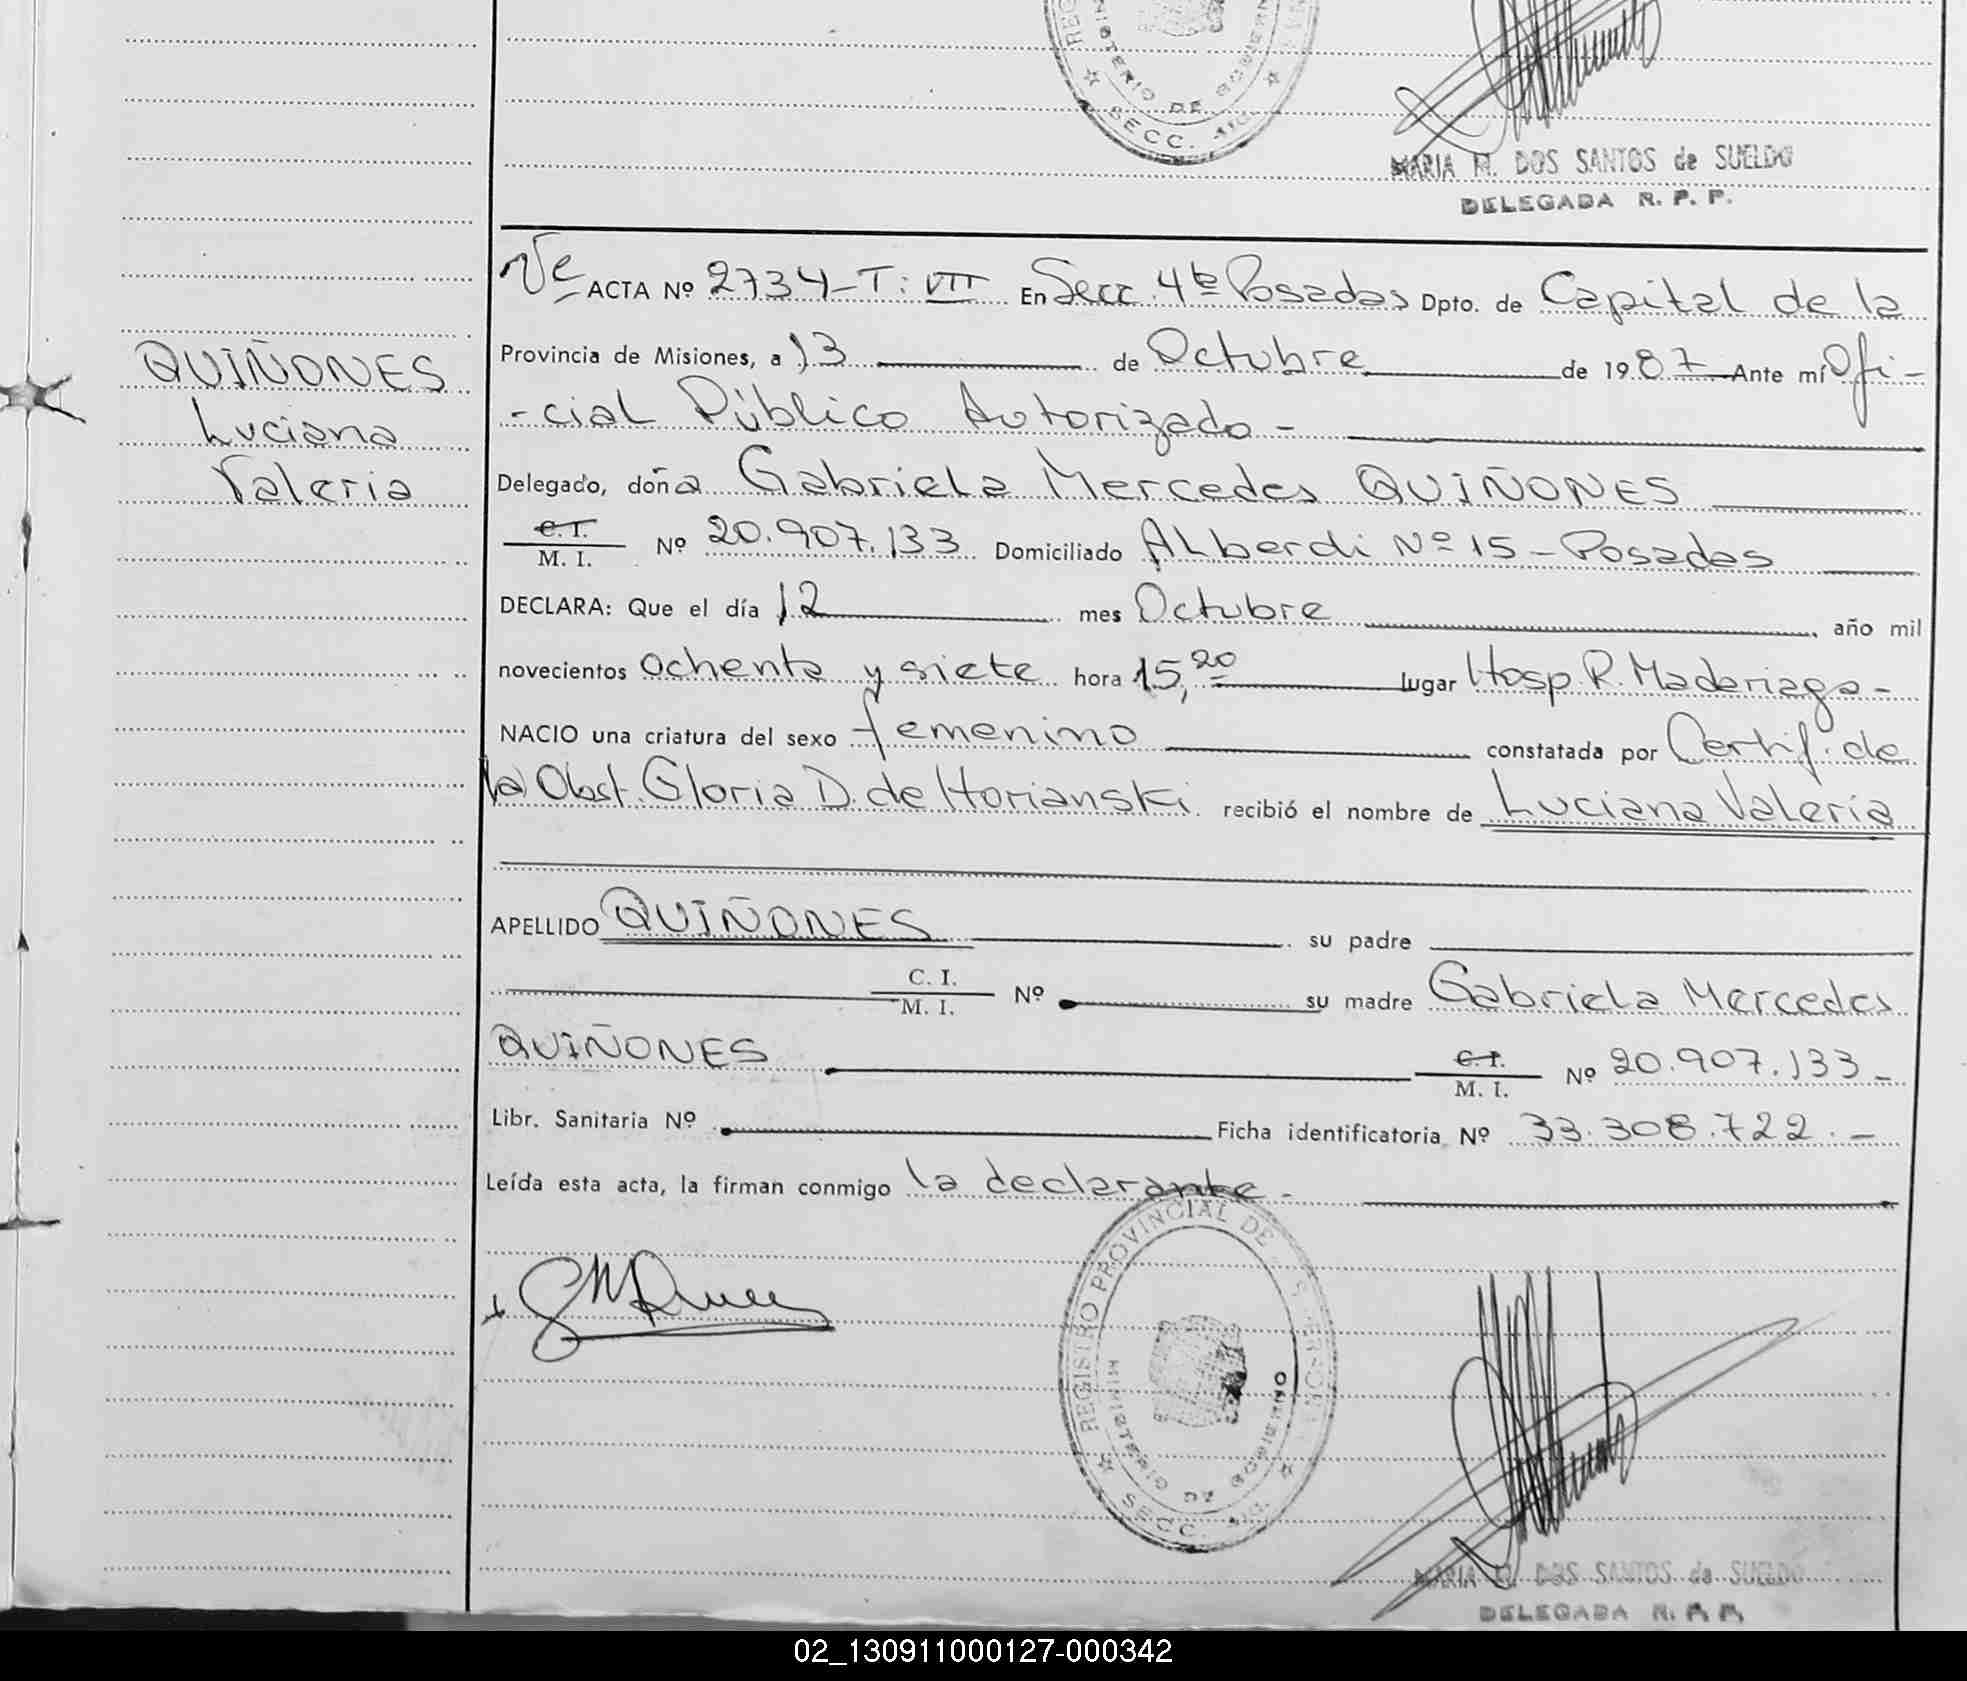 MINISTERIO DE GOBIERNO
SECC. 4ta.
MARIA M. DOS SANTOS de SUELDO
DELEGADA R. P. P.
QUIÑONES
Luciana
Valeria
ACTA Nº 2734-T: VII En Secc. 4ta Posadas Dpto. de Capital de la
Provincia de Misiones, a 13 de Octubre de 1987 Ante mí Ofi-
-cial Público Autorizado-
Delegado, doña Gabriela Mercedes QUIÑONES
C. I.
M. I. Nº 20.907.133 Domiciliado Alberdi Nº 15 - Posadas
DECLARA: Que el día 12 mes Octubre, año mil
novecientos ochenta y siete hora 15,20 lugar Hosp. R. Madariaga-
NACIO una criatura del sexo femenino constatada por Certif. de
la Obst. Gloria D. de Horianski recibió el nombre de Luciana Valeria
APELLIDO QUIÑONES su padre
C. I.
M. I. Nº su madre Gabriela Mercedes
QUIÑONES C. I.
M. I. Nº 20.907.133-
Libr. Sanitaria Nº Ficha identificatoria Nº 33.308.722.-
Leída esta acta, la firman conmigo la declarante-
REGISTRO PROVINCIAL DE
MINISTERIO DE GOBIERNO
SECC.
MARIA M. DOS SANTOS de SUELDO
DELEGADA R. P. P.
02_130911000127-000342